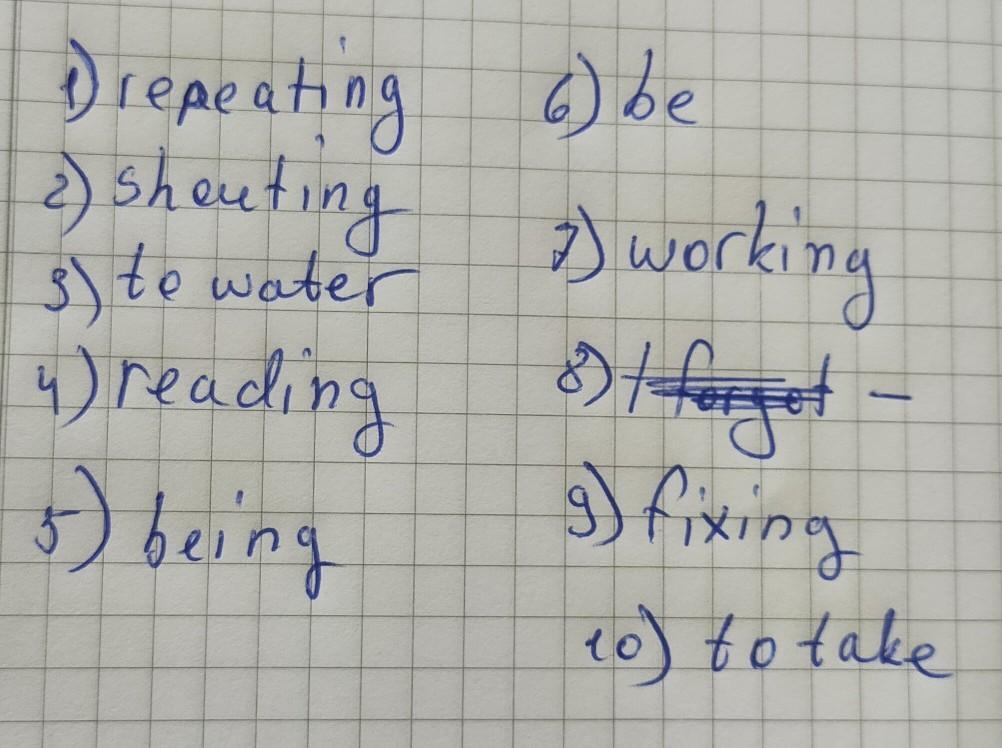 1) repeating
2) shouting
3) to water
4) reading
5) being
6) be
7) working
8) -
9) fixing
10) to take